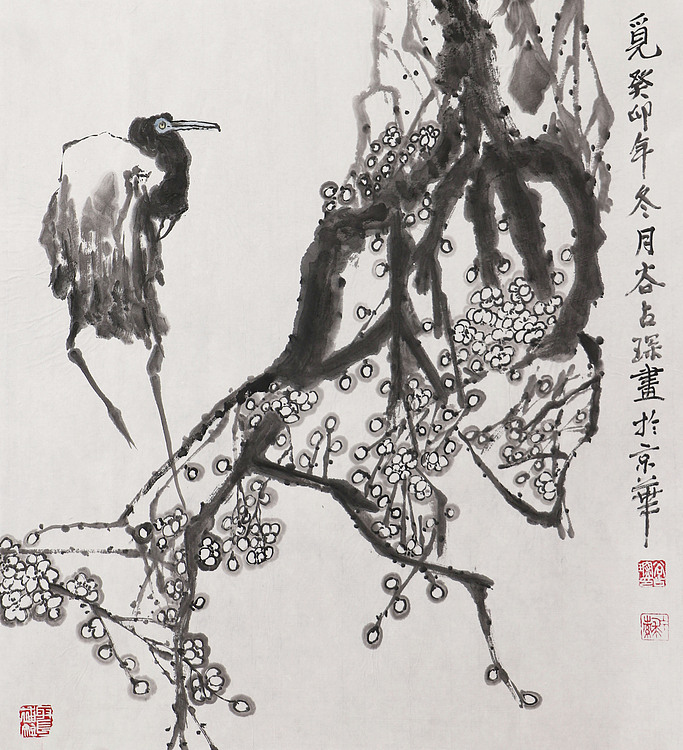 覓癸卯年冬月谷占琛畫於京華